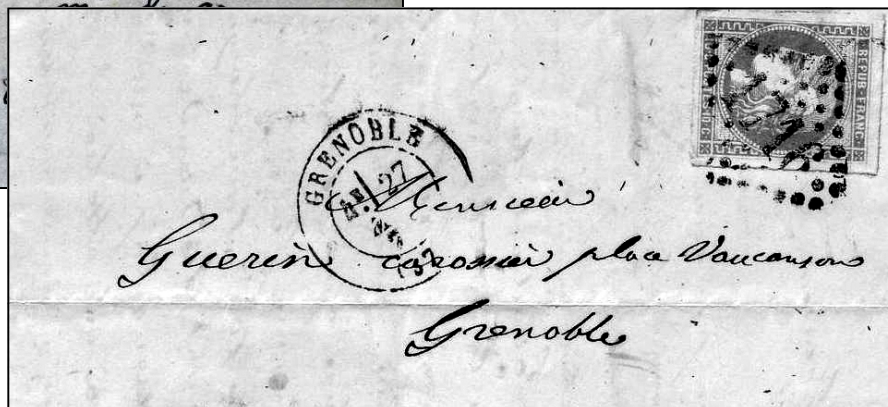 REPUB. FRANC.
10 C.
GRENOBLE
27
(37)
Monsieur
Guerin carossier place Vaucanson
Grenoble